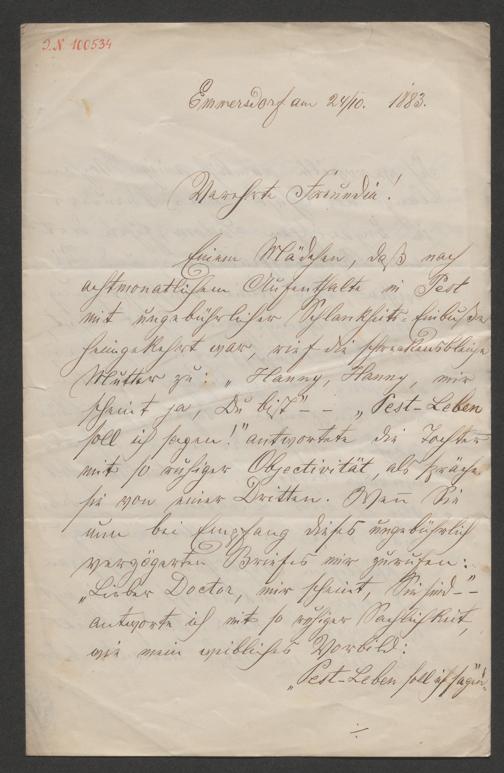 J.N 100534
Emmersdorf am 24/10. 1883.
Verehrte Freundin!
Einem Mädchen, daß nach
achtmonatlichem Aufenthalte in Pest
mit ungebührlicher Schlankheits-Einbuße
heimgekehrt war, rief die schreckensbleiche
Mutter zu: „Hanny, Hanny, mir
scheint ja, Du bist"– – „Pest-Leben
soll ich sagen!" antwortete die Tochter
mit so ruhiger Objectivität, als spräche
sie von einer Dritten. Wenn Sie
nun bei Empfang dieses ungebührlich
verzögerten Briefes mir zurufen:
„Lieber Doctor, mir scheint, Sie sind–"–
antworte ich mit so ruhiger Sachlichkeit,
wie mein weibliches Vorbild:
„Pest-Leben soll ich sagen"